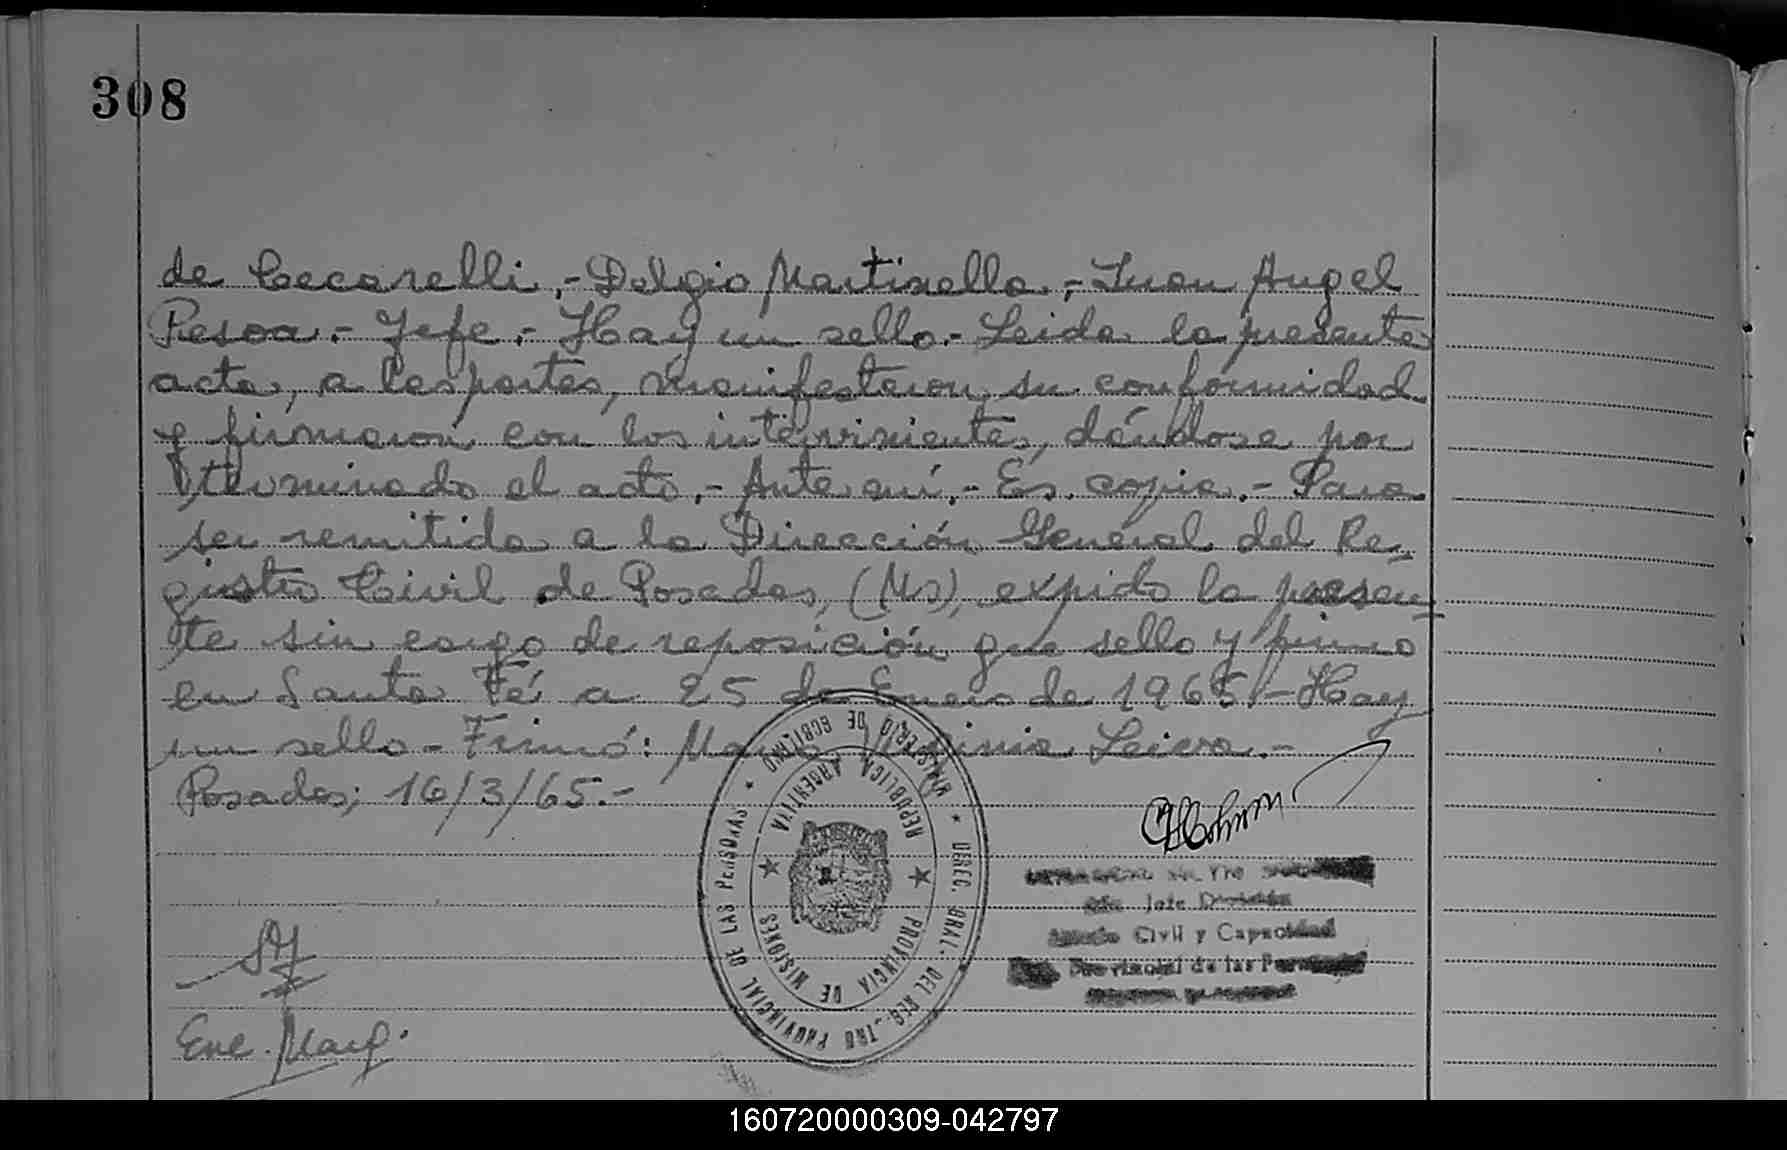 308
de Cecarelli.- Delgio Martinello.- Juan Angel
Pesoa.- Jefe.- Hay un sello.- Leida la presente
acta, a las partes, manifestaron su conformidad
y firmaron con los intervinientes, dándose por
terminado el acto.- Ante mí.- Es copia.- Para
ser remitida a la Dirección General del Re-
gistro Civil de Posadas, (Ms), expido la presen-
te sin cargo de reposición que sello y firmo
en Santa Fé a 25 de Enero de 1965.- Hay
un sello - Firmó: María Virginia Leiva.-
Posadas; 16/3/65.-
MINISTERIO DE GOBIERNO
DIREC. GRAL. DEL REG. PROVINCIAL DE LAS PERSONAS
REPUBLICA ARGENTINA
PROVINCIA DE MISIONES
Jefe División
Civil y Capacidad
Provincial de las Personas
160720000309-042797